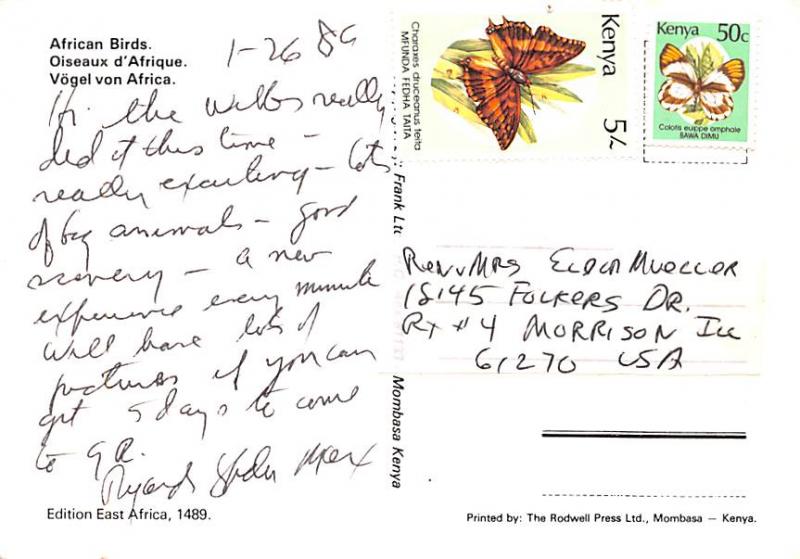 African Birds.
Oiseaux d'Afrique.
Vögel von Africa.
1-26 89
Hi the Webbs really
did it this time –
really exciting – lots
of big animals – good
scenery – a new
experience every minute
will have lots of
pictures if you can
get 5 days to come
to
Marx
Edition East Africa, 1489.
Frank Lt
Mombasa Kenya
Charaxes druceanus teita
MFUNDA FEDHA TAITA
Kenya
5/-
Kenya 50c
Colotis euippe omphale
BAWA DIMU
Rev & Mrs Eldor Mueller
18145 Fulkers Dr.
Rt #4 Morrison Ill
61270 USA
Printed by: The Rodwell Press Ltd., Mombasa – Kenya.